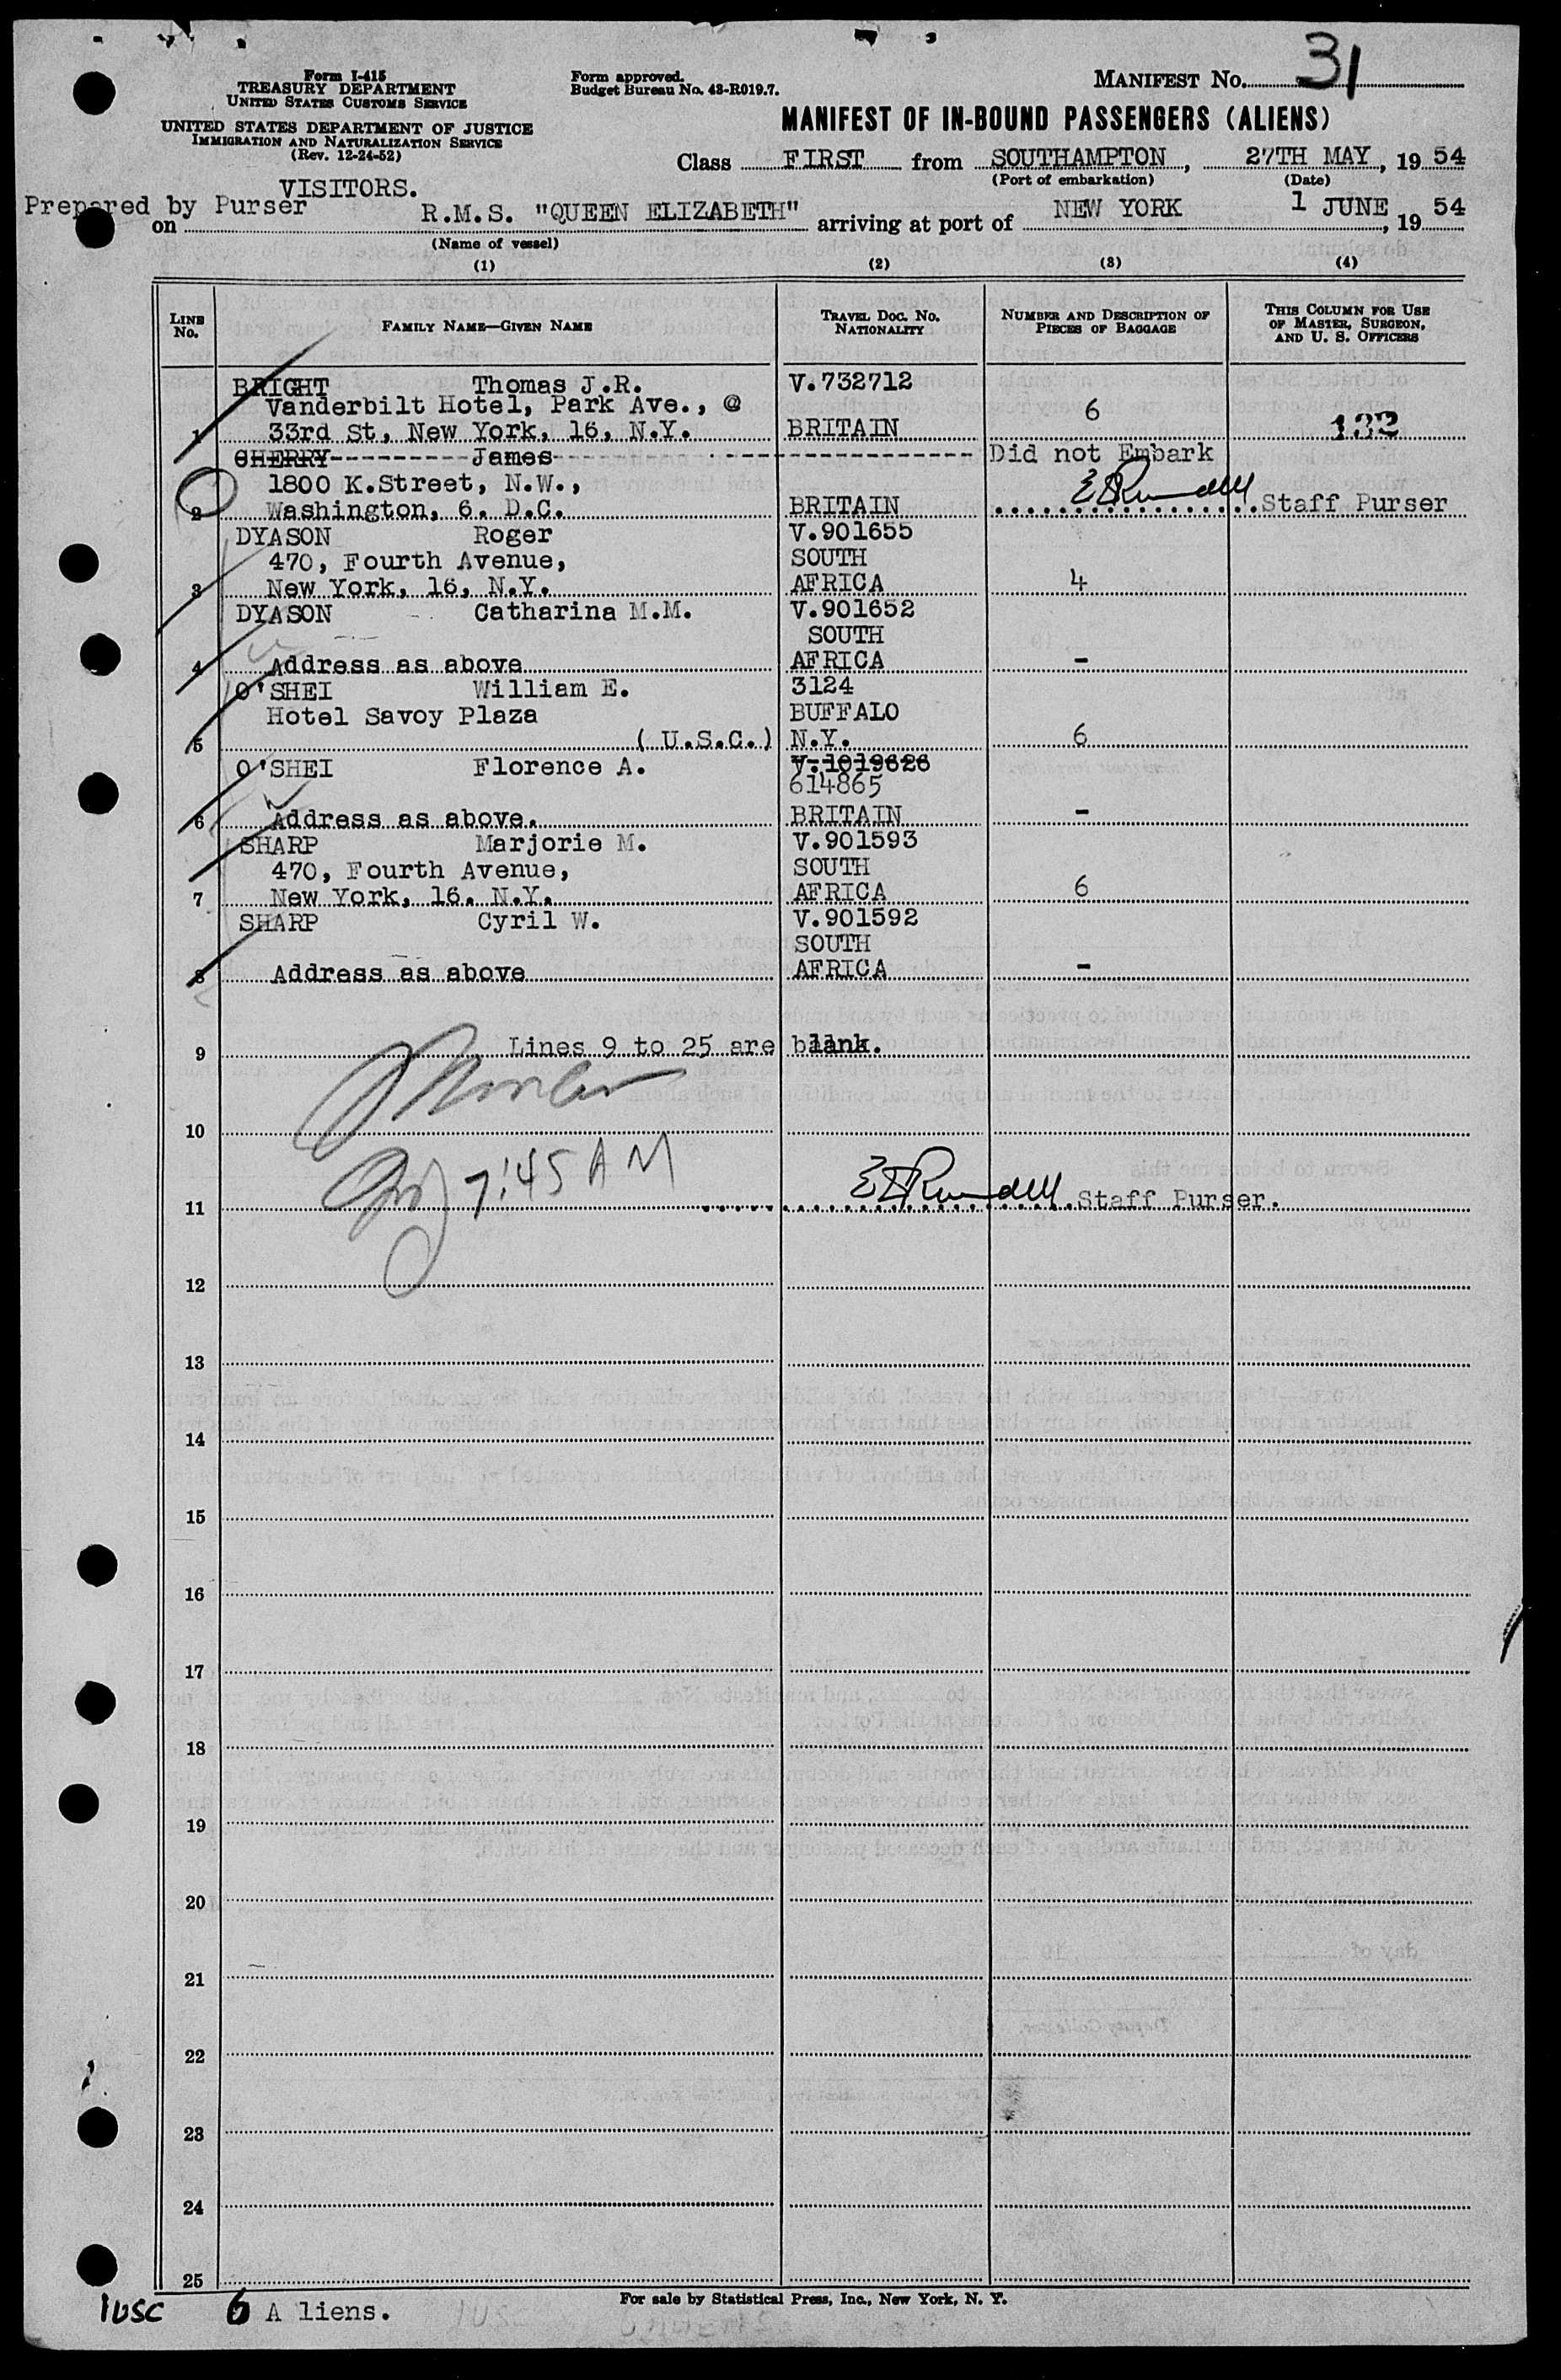 Form I-415
TREASURY DEPARTMENT
UNITED STATES CUSTOMS SERVICE
UNITED STATES DEPARTMENT OF JUSTICE
IMMIGRATION AND NATURALIZATION SERVICE
(Rev. 12-24-52)
Form approved.
Budget Bureau No. 43-R019.7.
MANIFEST No. 31
MANIFEST OF IN-BOUND PASSENGERS (ALIENS)
Class FIRST from SOUTHAMPTON, 27TH MAY, 19 54
(Port of embarkation) (Date)
VISITORS.
Prepared by Purser
on R.M.S. "QUEEN ELIZABETH" arriving at port of NEW YORK 1 JUNE, 19 54
(Name of vessel)
(1) (2) (3) (4)
LINE No. FAMILY NAME—GIVEN NAME TRAVEL DOC. NO. NATIONALITY NUMBER AND DESCRIPTION OF PIECES OF BAGGAGE THIS COLUMN FOR USE OF MASTER, SURGEON, AND U. S. OFFICERS
BRIGHT Thomas J.R. V.732712
Vanderbilt Hotel, Park Ave., @ 6
1 33rd St, New York, 16, N.Y. BRITAIN 132
CHERRY---------James- Did not Embark
1800 K.Street, N.W.,
2 Washington, 6. D.C. BRITAIN Staff Purser
DYASON Roger V.901655
470, Fourth Avenue, SOUTH
3 New York, 16, N.Y. AFRICA 4
DYASON Catharina M.M. V.901652
SOUTH
4 Address as above AFRICA -
O'SHEI William E. 3124
Hotel Savoy Plaza BUFFALO
5 ( U.S.C.) N.Y. 6
O'SHEI Florence A. V.1019626
614865
6 Address as above. BRITAIN -
SHARP Marjorie M. V.901593
470, Fourth Avenue, SOUTH
7 New York, 16. N.Y. AFRICA 6
SHARP Cyril W. V.901592
SOUTH
8 Address as above AFRICA -
9 Lines 9 to 25 are blank.
10
7:45 AM
11 Staff Purser.
12
13
14
15
16
17
18
19
20
21
22
23
24
25
For sale by Statistical Press, Inc., New York, N. Y.
1 USC 6 A liens.